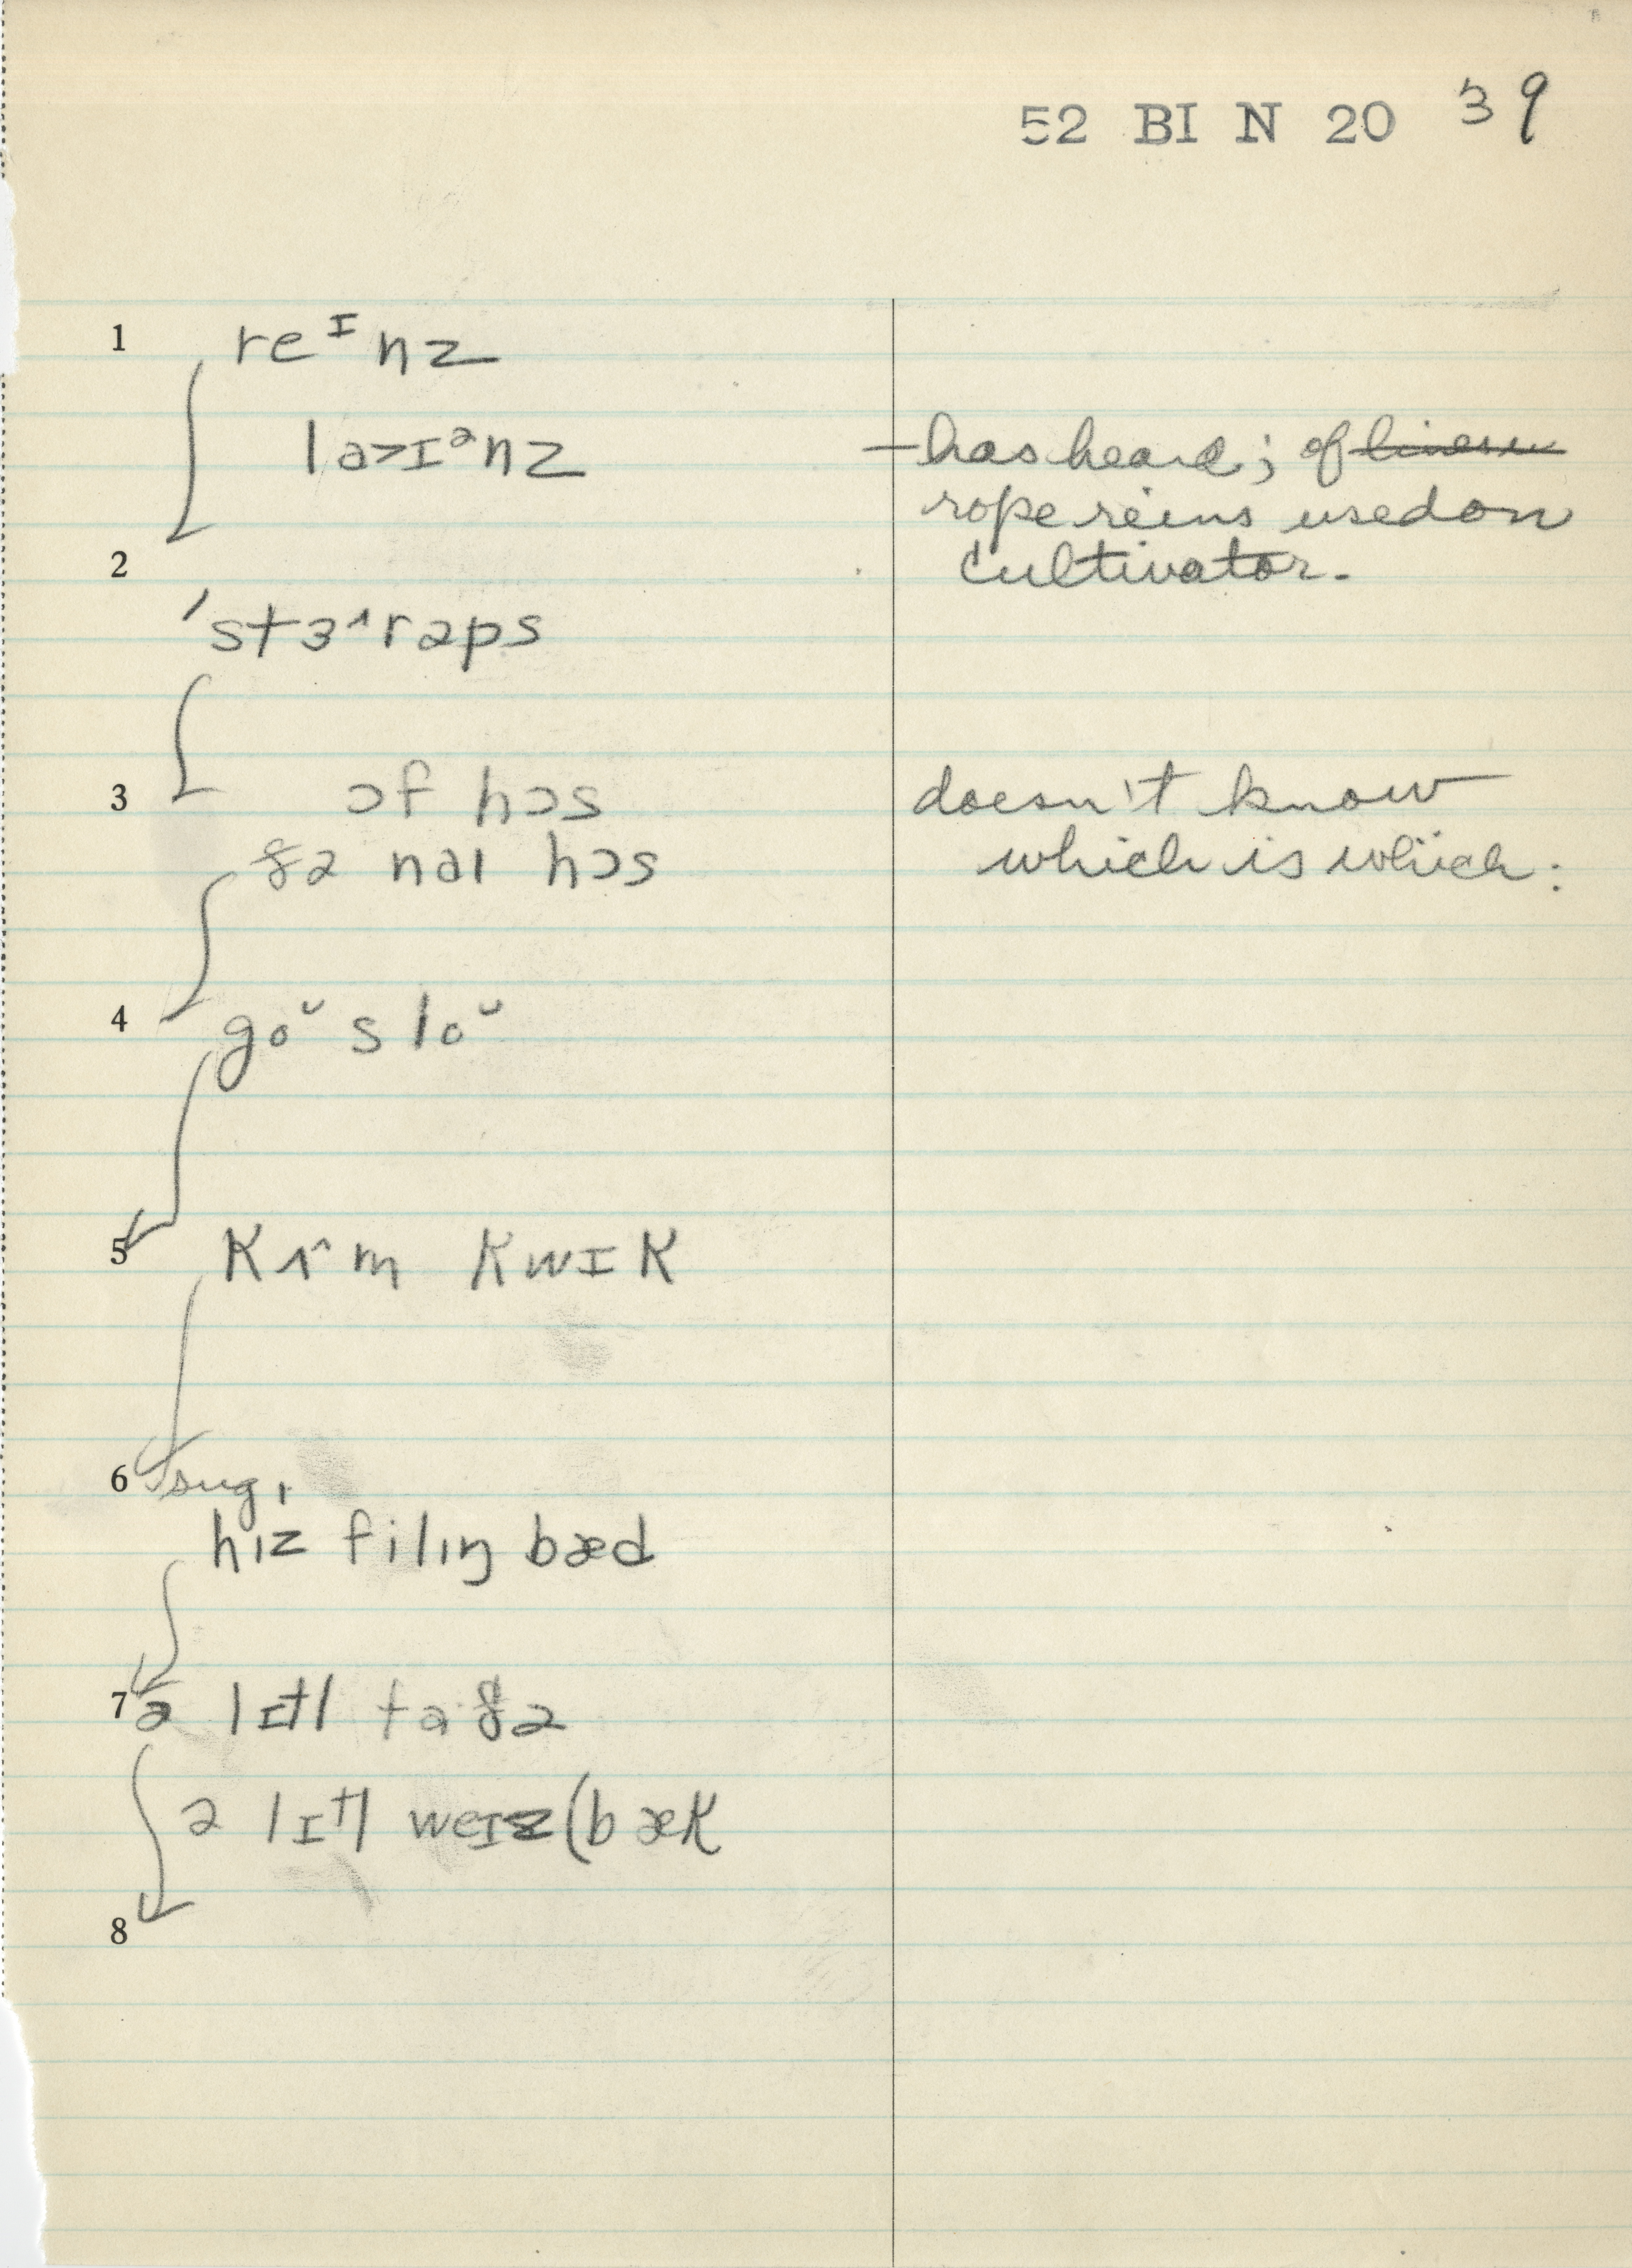 52 BI N 20 39
1 reᶦnz
la>ɪᵊnz —has heard; of
rope reins used on
2 cultivator.
ˈstɜ^rəps
3 ɔf hɔs doesn't know
ðə naɪ hɔs which is which:
4 goᵘ sloᵘ
5 kʌ^m kwɪk
6 sug.
hɪz filɪŋ bæd
7 ə lɪtl fɑ·ðə
ə lɪtl weɪz (bæk
8